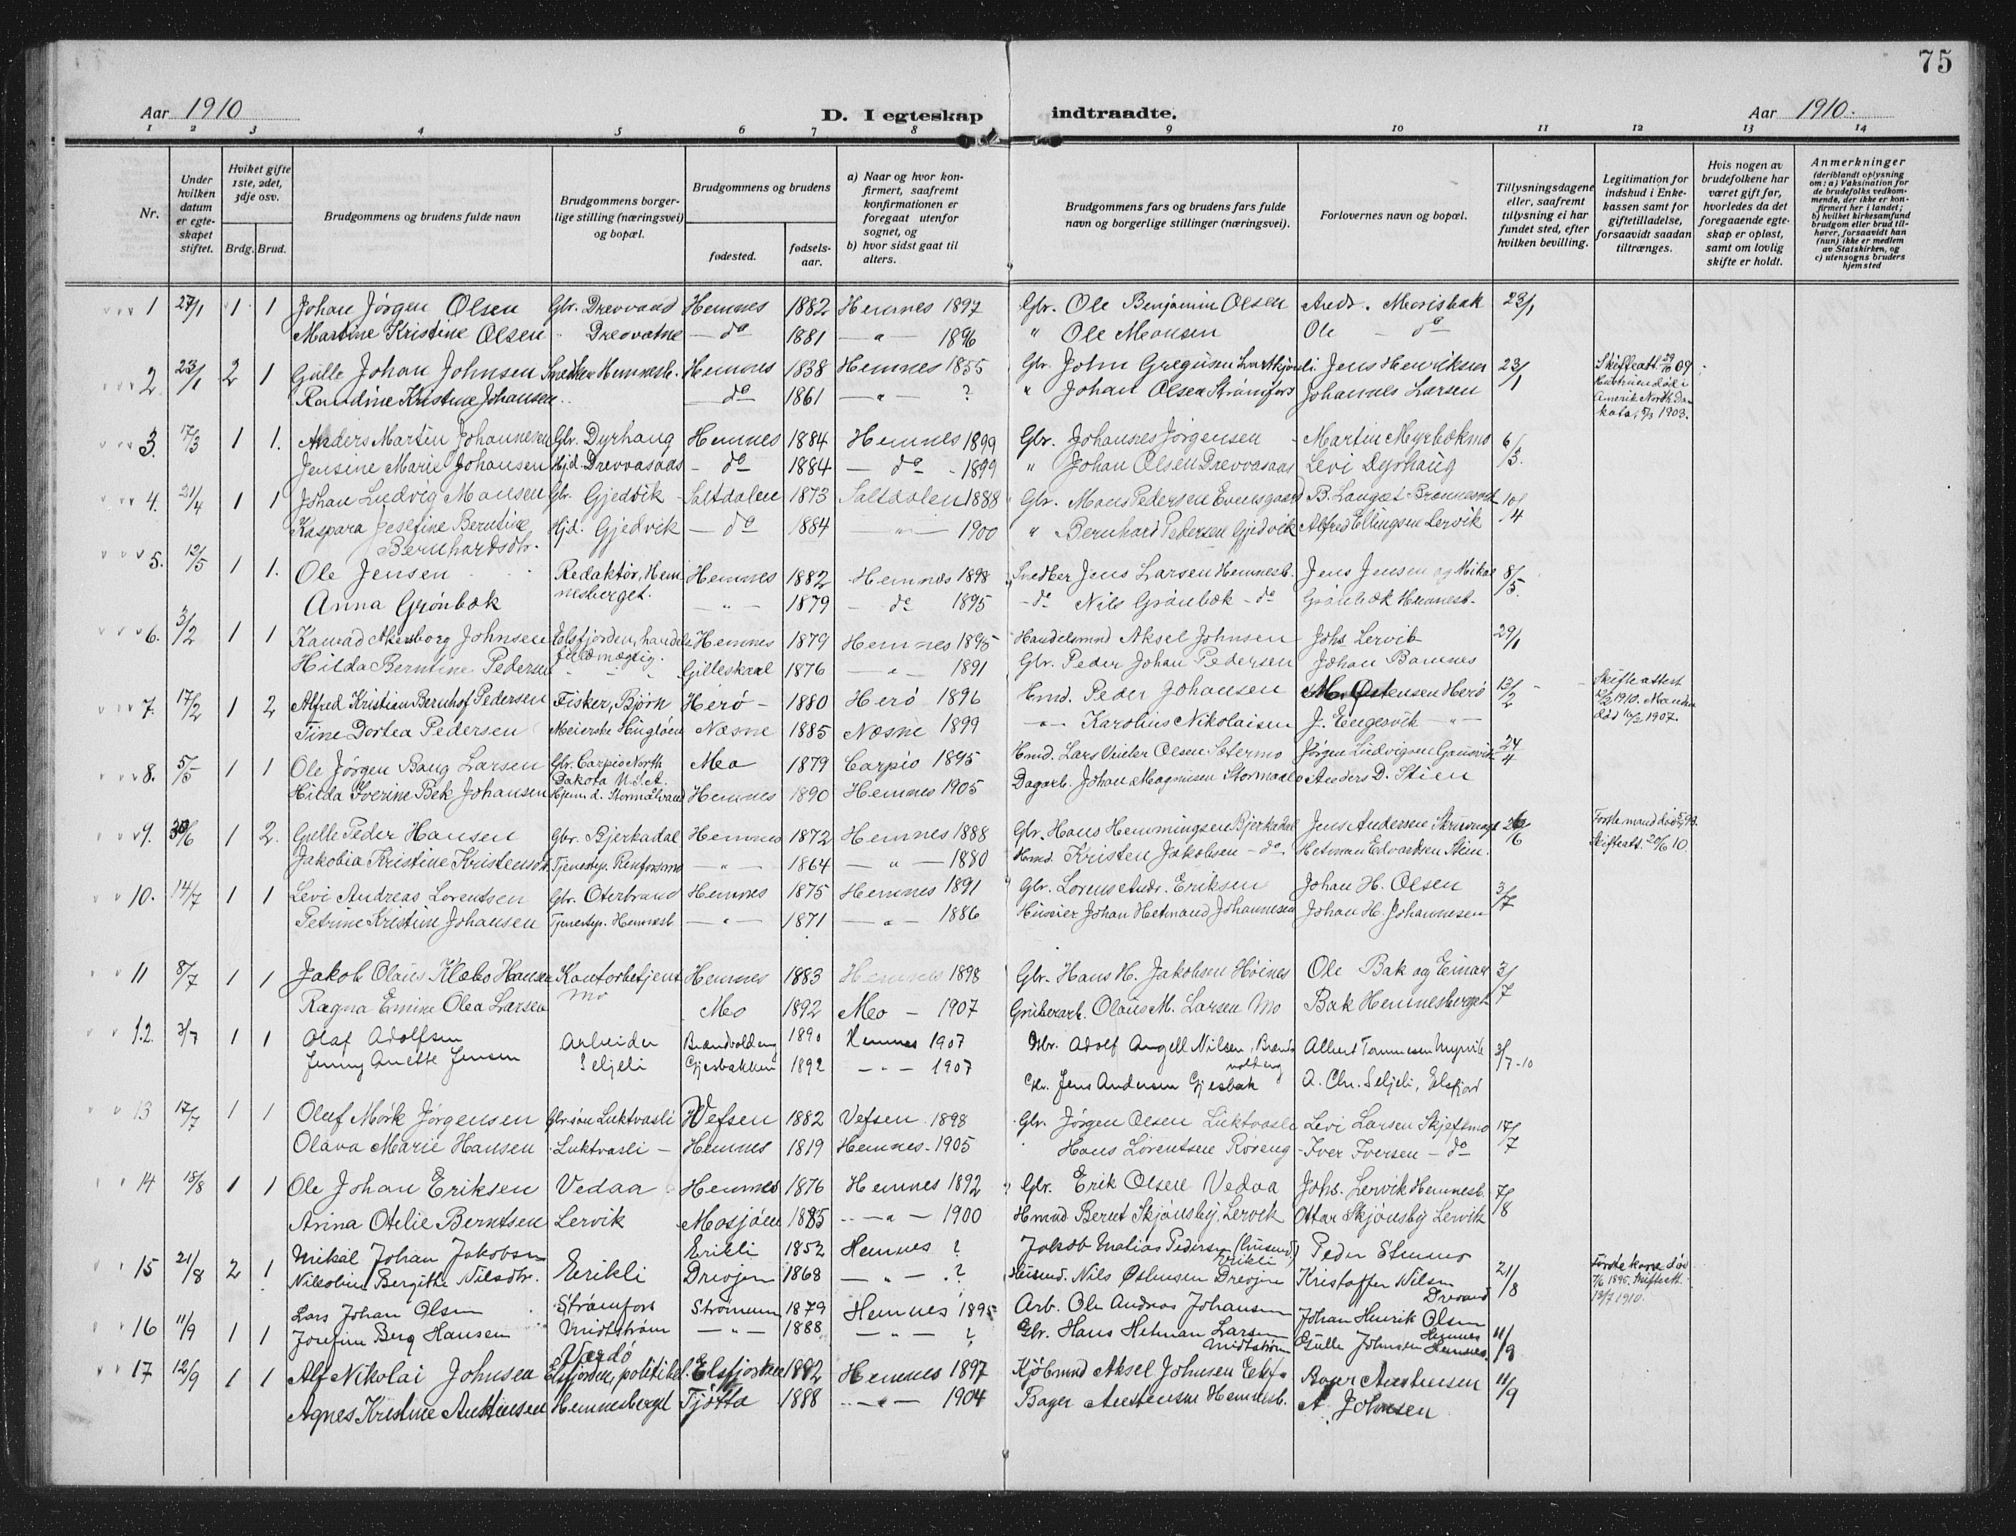 75
Aar 1910
D. I egteskap indtraadte.
Aar 1910.
1 2 3 4 5 6 7 8 9 10 11 12 13 14
Nr.
Under hvilken datum er egteskapet stiftet.
Hviket gifte 1ste, 2det, 3dje osv.
Brdg. Brud.
Brudgommens og brudens fulde navn
Brudgommens borgerlige stilling (næringsvei) og bopæl.
Brudgommens og brudens
fødested.
fødselsaar.
a) Naar og hvor konfirmert, saafremt konfirmationen er foregaat utenfor sognet, og
b) hvor sidst gaat til alters.
Brudgommens fars og brudens fars fulde navn og borgerlige stillinger (næringsvei).
Forlovernes navn og bopæl.
Tillysningsdagene eller, saafremt tillysning ei har fundet sted, efter hvilken bevilling.
Legitimation for indskud i Enkekassen samt for giftetilladelse, forsaavidt saadan tiltrænges.
Hvis nogen av brudefolkene har været gift før, hvorledes da det foregaaende egteskap er opløst, samt om lovlig skifte er holdt.
Anmerkninger (deriblandt oplysning om: a) Vaksination for de brudefolks vedkommende, der ikke er konfirmert her i landet; b) hvilket kirkesamfund brudgom eller brud tilhører, forsaavidt han (hun) ikke er medlem av Statskirken, og c) utensogns bruders hjemsted
1 27/1 1 1 Johan Jørgen Olsen Gbr. Drevvand Hemnes 1882 Hemnes 1897 Gbr. Ole Benjamin Olsen Andr. Morisbak 23/1
Martine Kristine Olsen " Drevvatne - do 1881 - " - 1896 " Ole Monsen Ole - do
2 23/1 2 1 Gulle Johan Johnsen Snedker Hemnesb. Hemnes 1838 Hemnes 1855 Gbr. John Gregusen Jens Henriksen 23/1 Skifteatt. 29/10 09.
Randine Kristine Johansen - do 1861 - " - ? " Johan Olsen Strømfors Johannes Larsen Hustruen død i Amerik. North Dakota, 1903.
3. 17/3 1 1. Anders Martin Johannesen Gbr. Dyrhaug Hemnes 1884 Hemnes 1899 Gbr. Johannes Jørgensen Martin Myrbækmo 6/3.
Jensine Marie Johansen Hjd. Drevvasaas - do 1884 - do - 1899 " Johan Olsen Drevvasaas Levi Dyrhaug
4. 21/4 1 1 Johan Ludvig Monsen Gbr. Gjedvik Saltdalen 1873 Saltdalen 1888 Gbr. Mons Pedersen Evensgaard B. Langset Brønnesund 10/4
Kaspara Josefine Berntine Bernhardsdtr. Hjd. Gjedvik - do 1884 - " - 1900 " Bernhard Pedersen Gjedvik Alfred Ellingsen Lervik
5. 12/5 1 1. Ole Jensen Redaktør, Hemnesberget. Hemnes 1882 Hemnes 1898 Snedker Jens Larsen Hemnesb. Jens Jensen og Mikal 8/5
Anna Grönbæk - " - 1879 - do 1895 - do Nils Grönbæk - do Grönbæk Hemnesb.
6. 3/2 1 1 Konrad Akersborg Johnsen Elsfjorden, handelsfuldmægtig. Hemnes 1879 Hemnes 1895 Handelsmnd Aksel Johnsen Johs Lervik 29/1
Hilda Berntine Pedersen Gilleskaal 1876 - " - 1891 Gbr. Peder Johan Pedersen Johan Bamnes
7. 17/2 1 2 Alfred Kristian Bernhof Pedersen Fisker, Björn Herö - 1880 Herö 1896 Hmd. Peder Johansen M. Østensen Herö 13/2 Skifte attest 1910. Manden
Tine Dortea Pedersen Meierske Næsne 1885 Næsne 1899 - " - Karolius Nikolaisen J. Engesvik - " - død 1907.
8. 5/5 1 1 Ole Jørgen Bang Larsen Gbr. Carpio North Dakota U.S.A. Mo 1879 Carpio 1895 Hmd. Lars Olsen Sætermo Jørgen Ludvigsen 24/4
Hilda Iverine Bek Johansen Hjem d. Hemnes 1890 Hemnes 1905 Dagarb. Johan Magnusen Anders D. Stien
9. 30/6 1 2. Gulle Peder Hansen Gbr. Bjerkadal Hemnes 1872 Hemnes 1888 Gbr. Hans Hemmingsen Bjerkadal Jens Andersen 26/6 Første mand død
Jakobia Kristine Kristensdt. Tjenestep. - " - 1864 - " - 1880 Hmd. Kristen Jakobsen - do Hetman Edvardsen Stien. Skifteatt. 20/6 10.
10. 14/7 1 1 Levi Andreas Lorentsen Gbr. Oterbrand Hemnes 1875 Hemnes 1891 Gbr. Lorens Andr. Eriksen Johan H. Olsen 3/7
Petrine Kristine Johansen Tjenestep. Hemnesb - " - 1871 - " - 1886 Husier Johan Hetmand Johannesen Johan H. Johannesen
11 8/7 1 1 Jakob Olaus Klæbo Hansen Kontorbetjent Mo Hemnes 1883 Hemnes 1898 Gbr. Hans H. Jakobsen Høines Ole Bak og Einar 3/7
Ragna Emine Olea Larsen Mo 1892 Mo - 1907 Gruberarb. Olaus M. Larsen Mo Bak Hemnesberget
12. 3/7 1 1 Olaf Adolfsen Arbeider Brændvoldeng 1890 Hemnes 1907 Gbr. Adolf Angell Nilsen, Brændvoldeng Albert Myrvik 3/7-10
Jenny Anette Jensen Seljeli Gjesbakken 1892 - " - 1907 Gbr. Jens Andersen Gjesbak A. Chr. Seljeli, Elsfjord
13 17/7 1 1 Oluf Mørk Jørgensen Gbr. søn Luktvasli Vefsen 1882 Vefsen 1898 Gbr. Jørgen Olsen Luktvasli Levi Larsen Skjetlmo 17/7
Olava Marie Hansen Luktvasli - Hemnes 1819 Hemnes 1905 Hans Lorentsen Røreng Iver Iversen - do
14 18/8 1 1 Ole Johan Eriksen Vedaa Hemnes 1876 Hemnes 1892 Gbr. Erik Olsen Vedaa Johs. Lervik Hemnesb. 7/8
Anna Otelie Berntsen Lervik Mosjøen 1885 - " - 1900 Hmnd Bernt Skjønsby, Lervik Ottar Skjønsby Lervik
15 21/8 2 1 Mikal Johan Jakobsen Erikli Erikli 1852 Hemnes ? Jakob Matias Pedersen (husmd.) Erikli Peder 21/8 Første kone død
Nikoline Bergithe Nilsdtr. Drevjen 1868 - " - ? Husmd. Nils Østensen Drevjen Kristoffer Nilsen Drevand 7/6 1895. Skifteatt. 13/7 1910.
16 11/9 1 1 Lars Johan Olsen Strømfors Strømmen 1879 Hemnes 1895 Arb. Ole Andreas Johansen Johan Henrik Olsen Hemnes 11/9
Josefine Berg Hansen Midtstrøm - " - 1888 - " - ? Gbr. Hans Hetman Larsen Midtstrøm Gulle Johnsen Hemnes
17 12/9 1 1 Alf Nikolai Johnsen Vardö Elsfjorden, politibet. Elsfjorden 1882 Hemnes 1897 Kjöbmnd Aksel Johnsen Elsfj. Bager Austensen 11/9
Agnes Kristine Austensen Hemnesberget Tjötta 1888 - " - 1904 Bager Austensen Hemnesb. A. Johnsen